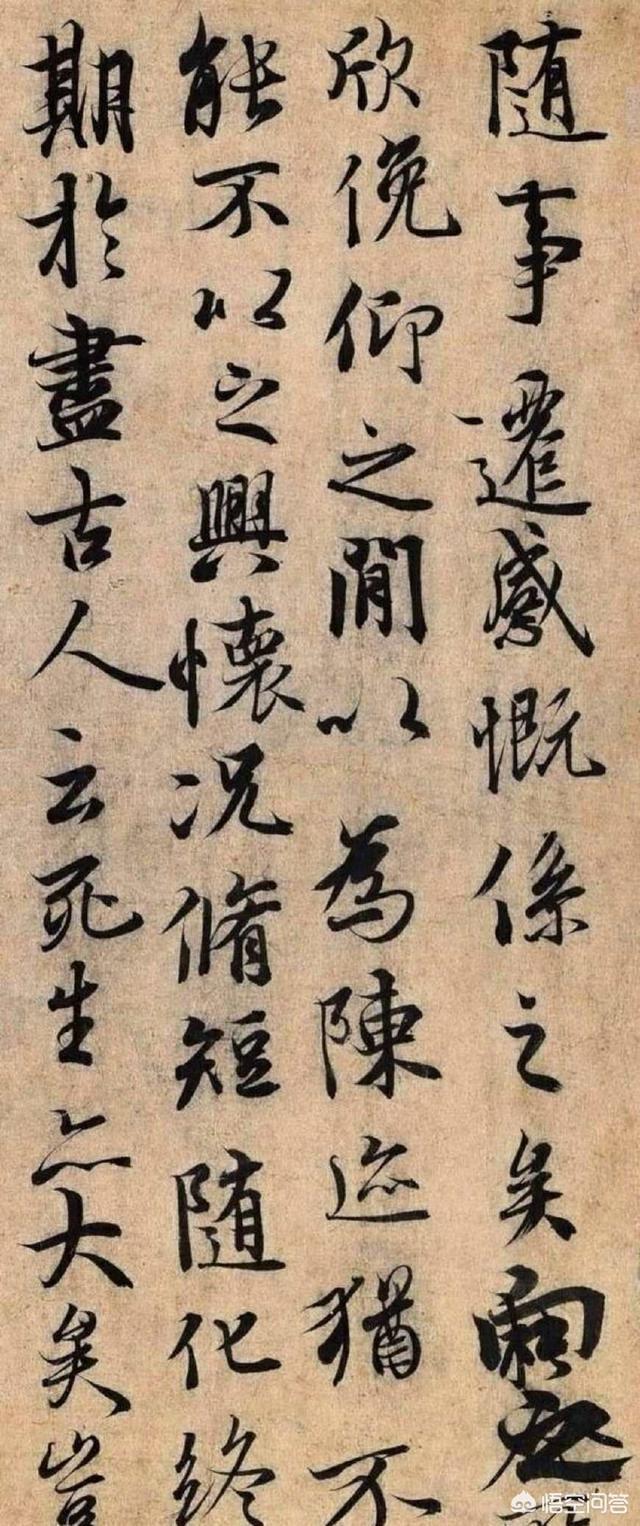 随事遷感慨係之矣向之
欣俛仰之閒以為陳迹猶不
能不以之興懷况脩短随化終
期於盡古人云死生亦大矣豈
悟空问答